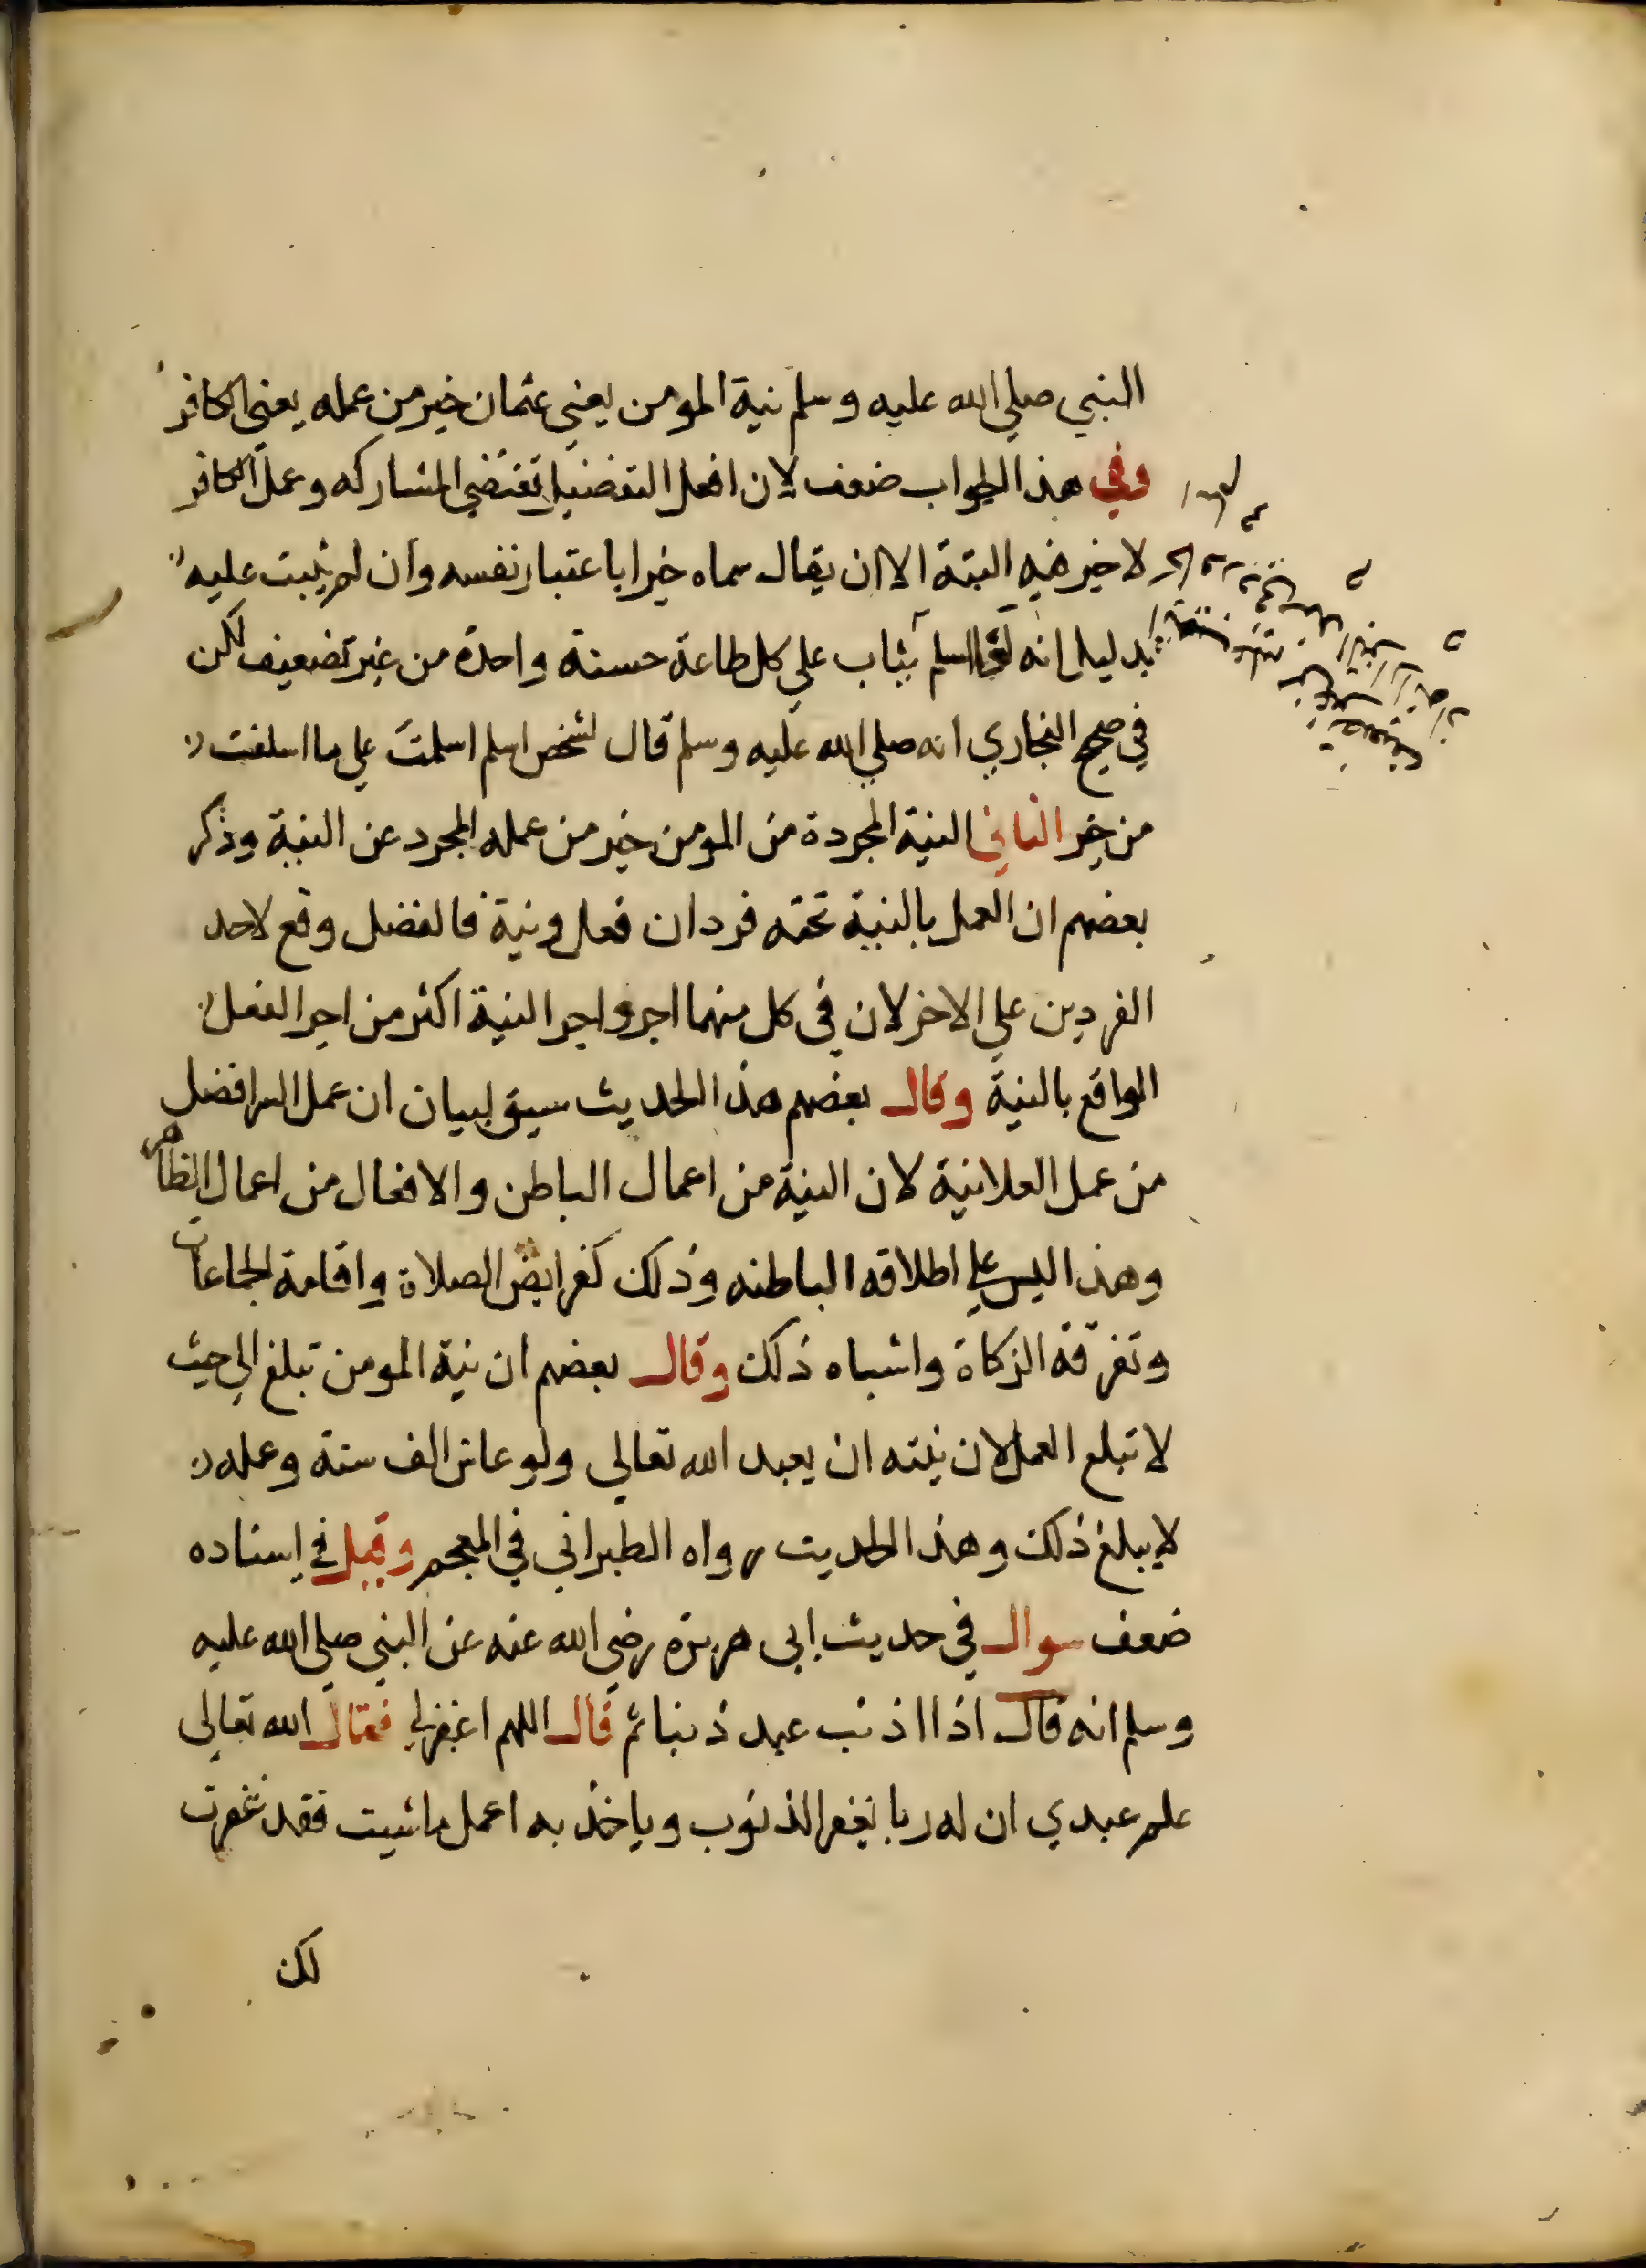 النبي صلي الله عليه وسلم نية المومن يعني عثمان خير من عمله يعني الكافر
وفي هذا الجواب ضعف لان افعل التفضيل تقتضي المشاركه وعمل الكافر
لا خير فيه البتة الا ان يقال سماه خيرا باعتبار نفسه وان لم يثبت عليه
بدليل انه لو اسلم يثاب علي كل طاعة حسنة واحدة من غير تضعيف لكن
في صحيح البخاري انه صلي الله عليه وسلم قال لشخص اسلم اسلمت علي ما اسلفت
من خير الثاني النية المجردة من المومن خير من عمله المجرد عن النية وذكر
بعضهم ان العمل بالنية تحته فردان فعل ونية فالفضل وقع لاحد
الفردين علي الاخر لان في كل منهما اجر واجر النية اكثر من اجر الفعل
الواقع بالنية وقال بعضهم هذا الحديث سيق لبيان ان عمل السر افضل
من عمل العلانية لان النية من اعمال الباطن والافعال من اعمال الظاهر
وهذا ليس علي اطلاقه الباطنه وذلك كفرايض الصلاة واقامة الجماعات
وتفرقة الزكاة واشباه ذلك وقال بعضهم ان نية المومن تبلغ الي حيث
لا تبلغ العمل لان نيته ان يعبد الله تعالي ولو عاش الف سنة وعمله
لا يبلغ ذلك وهذا الحديث رواه الطبراني في المعجم وقيل في اسناده
ضعف سوال في حديث ابي هريرة رضي الله عنه عن النبي صلي الله عليه
وسلم انه قال اذا اذنب عبد ذنبا ثم قال اللهم اغفر لي فقال الله تعالي
علم عبدي ان له ربا يغفر الذنوب وياخذ به اعمل ما شيت فقد غفرت
لك